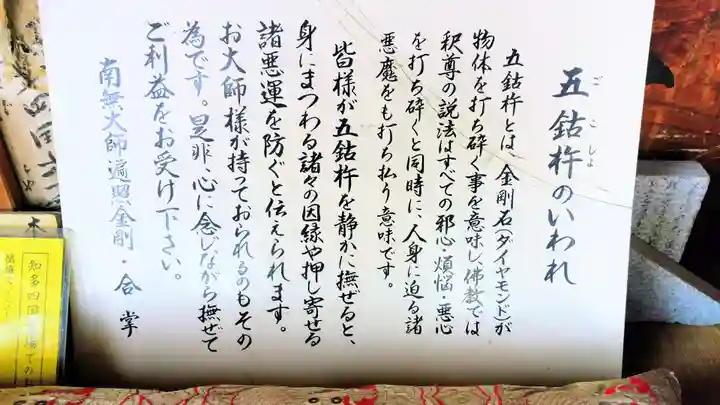 五鈷杵のいわれ
ご こ しょ
五鈷杵とは、金剛石(ダイヤモンド)が
物体を打ち砕く事を意味し、佛教では
釈尊の説法はすべての邪心・煩悩・悪心
を打ち砕くと同時に、人身に迫る諸
悪魔をも打ち払う意味です。
皆様が五鈷杵を静かに撫ぜると、
身にまつわる諸々の因縁や押し寄せる
諸悪運を防ぐと伝えられます。
お大師様が持っておられるのもその
為です。是非、心に念じながら撫ぜて
ご利益をお受け下さい。
南無大師遍照金剛・合掌
知多四国